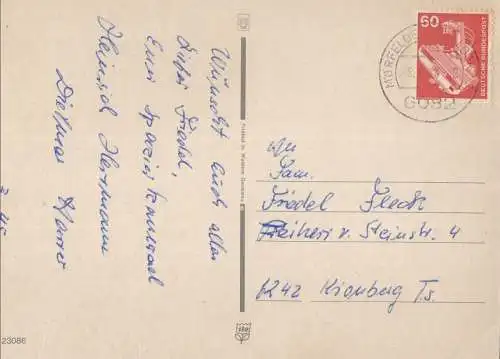 Wünscht euch allen
Lieber Friedel,
Euer
Heinrich Herrmann
Dietmar
23086
Printed in Western Germany
MÖRFELDEN
6082
60
DEUTSCHE BUNDESPOST
An
Fam.
Friedel Fleck
Freiherr v. Steinstr. 4
6242 Kronberg Ts.